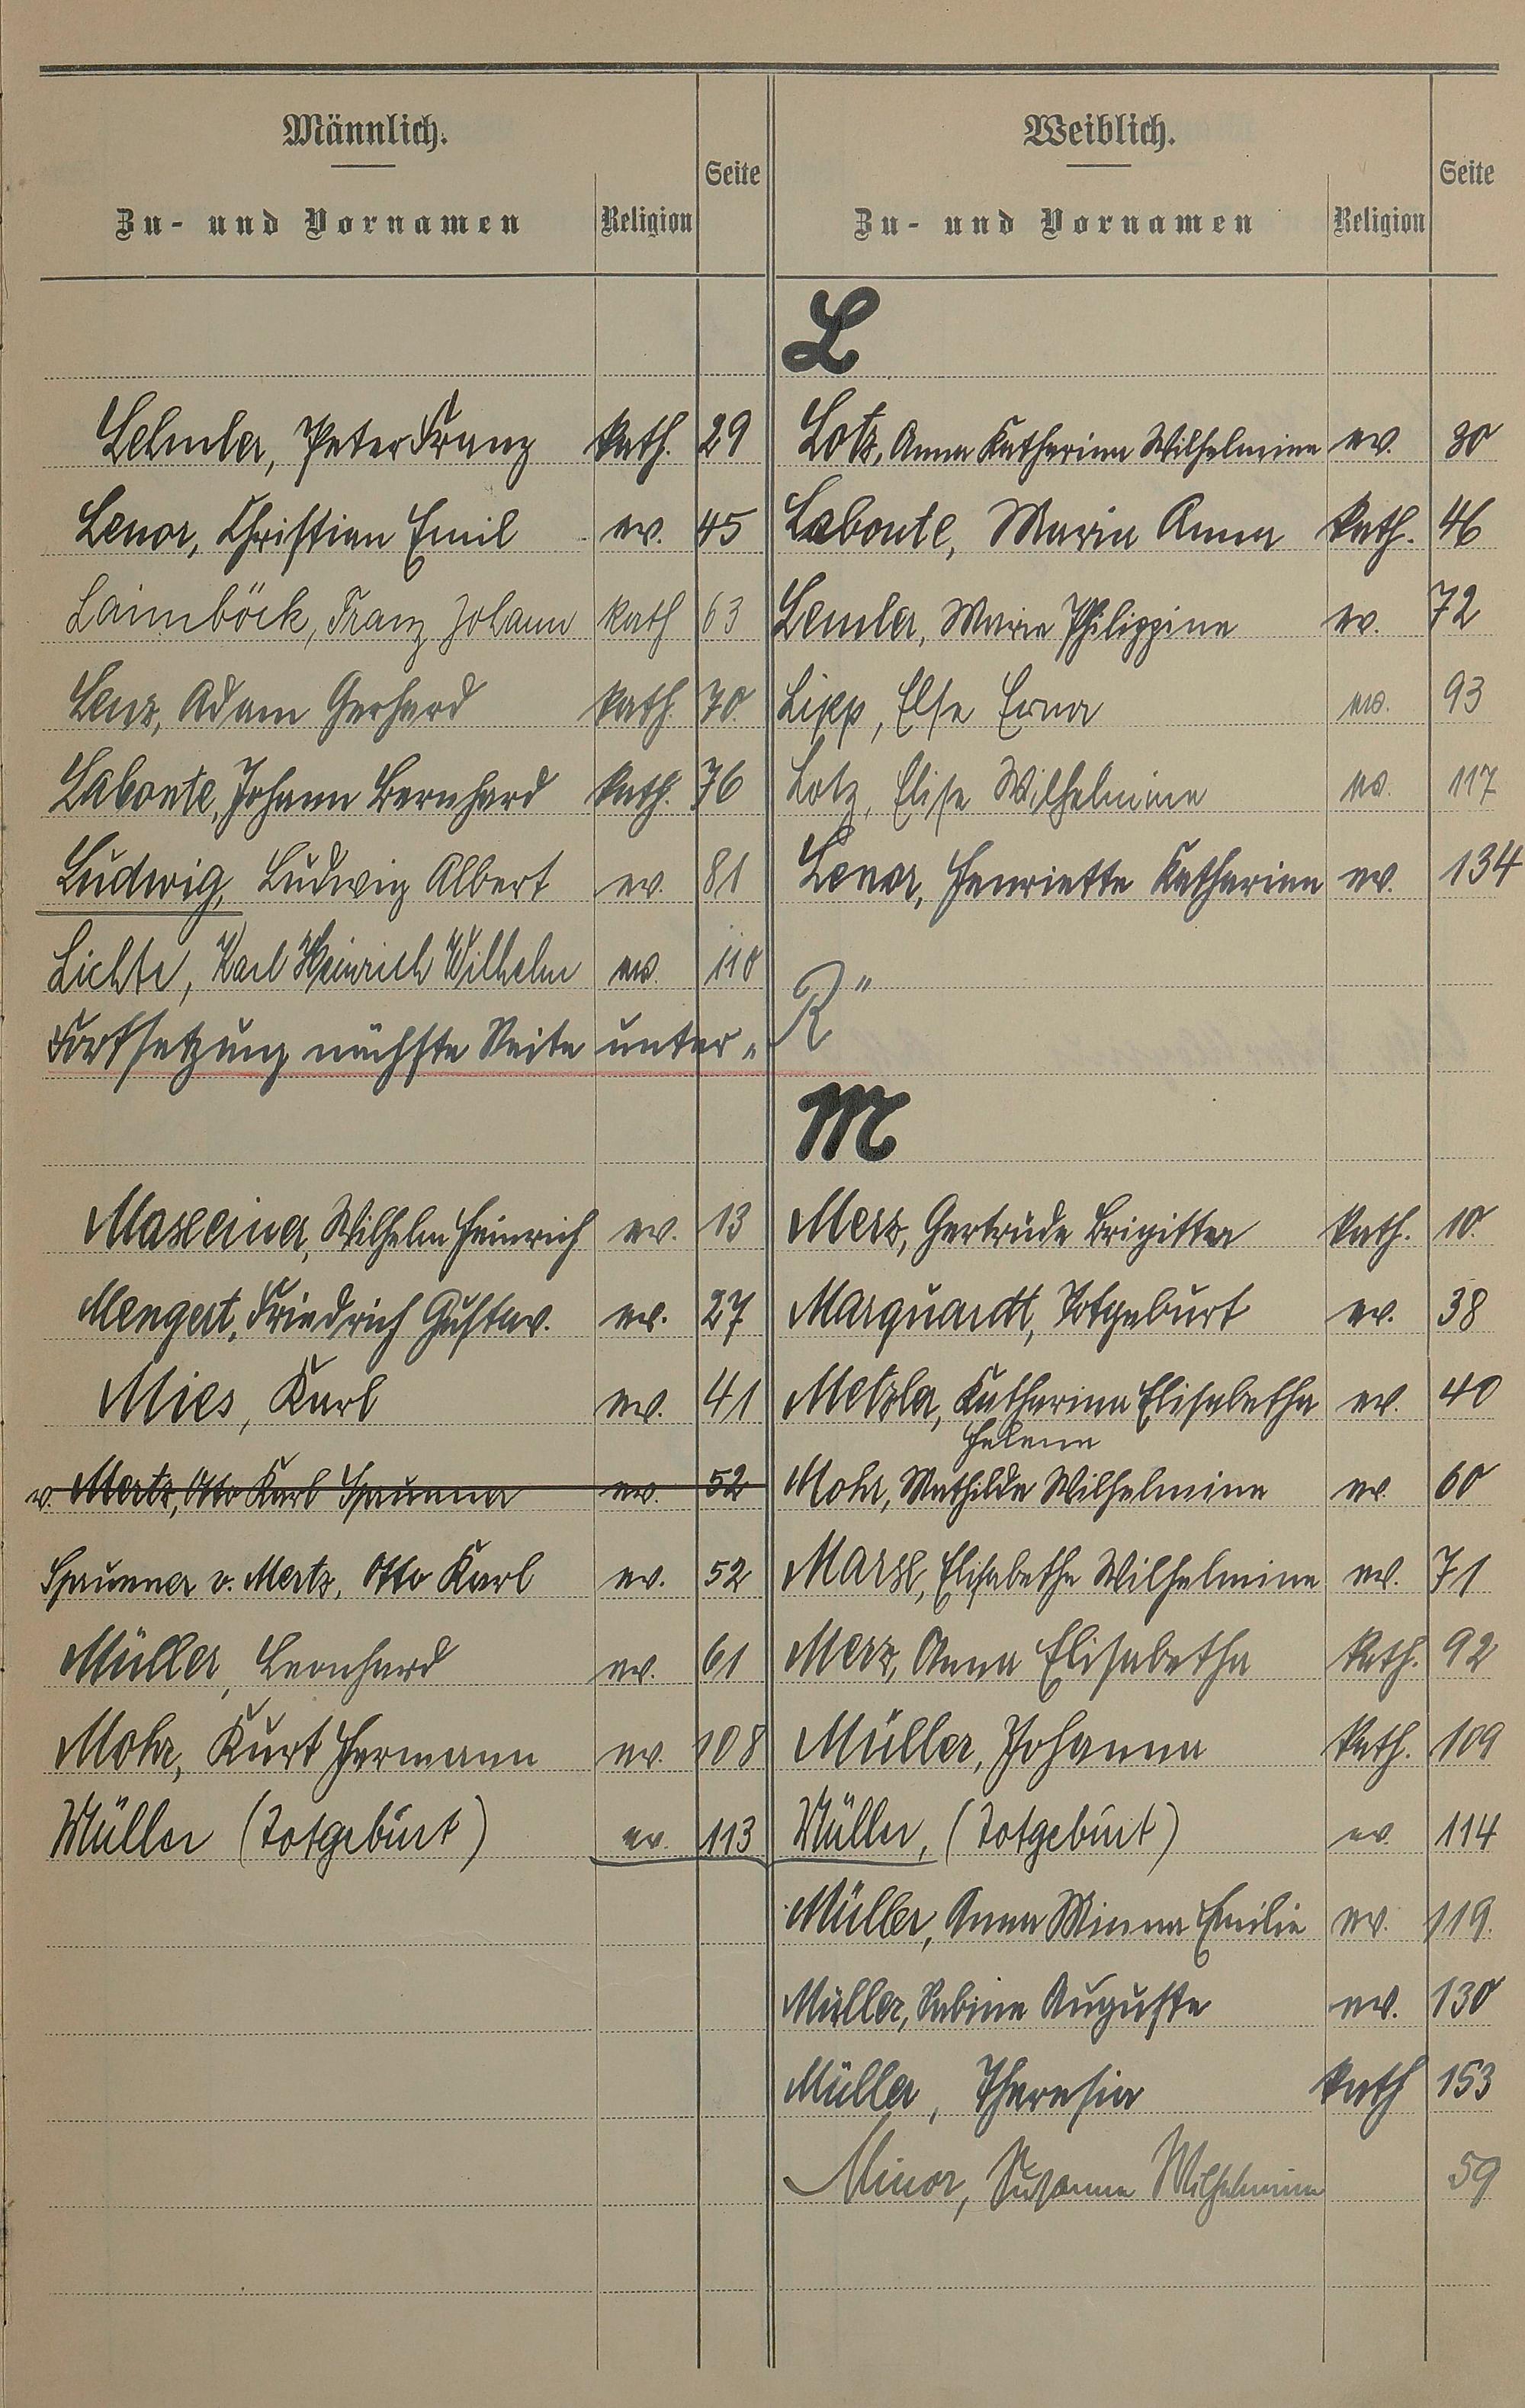 Männlich.
Seite
Zu- und Vornamen
Religion
Weiblich.
Seite
Zu- und Vornamen
Religion
L
Lehmler, Peter Franz kath. 29
Lotz, Anna Katharina Wilhelmine ev. 30
Lenor, Christian Emil ev. 45
Labonte, Maria Anna kath. 46
Laimböck, Franz Johann kath 63
Lemler, Marie Philippine ev. 72
Lenz, Adam Gerhard kath. 70.
Lipp, Else Erna ev. 93
Labonte, Johann Bernhard kath. 76
Lotz, Elise Wilhelmine ev. 117
Ludwig, Ludwig Albert ev. 81
Lenor, Henriette Katharina ev. 134
Lichte, Karl Heinrich Wilhelm ev. 110
Fortsetzung nächste Seite unter „R"
M
Maxeiner, Wilhelm Heinrich ev. 13
Merz, Gertrude Brigitta kath. 10.
Mengert, Friedrich Gustav. ev. 27
Marquardt, Totgeburt ev. 38
Mies, Karl ev. 41
Metzler, Katharina Elisabetha ev. 40
Helene
v. Mertz, Otto Karl Spruner ev. 52
Mohr, Mathilde Wilhelmine ev. 60
Spruner v. Mertz, Otto Karl ev. 52
Marx, Elisabetha Wilhelmine ev. 71
Müller, Leonhard ev. 61
Merz, Anna Elisabetha kath. 92
Mohr, Kurt Hermann ev. 108
Müller, Johanna kath. 109
Müller (Totgeburt) ev. 113
Müller, (Totgeburt) ev. 114
Müller, Anna Minna Emilie ev. 119.
Müller, Sabine Auguste ev. 130
Müller, Theresia kath 153
Minor, Susanne Wilhelmine 59